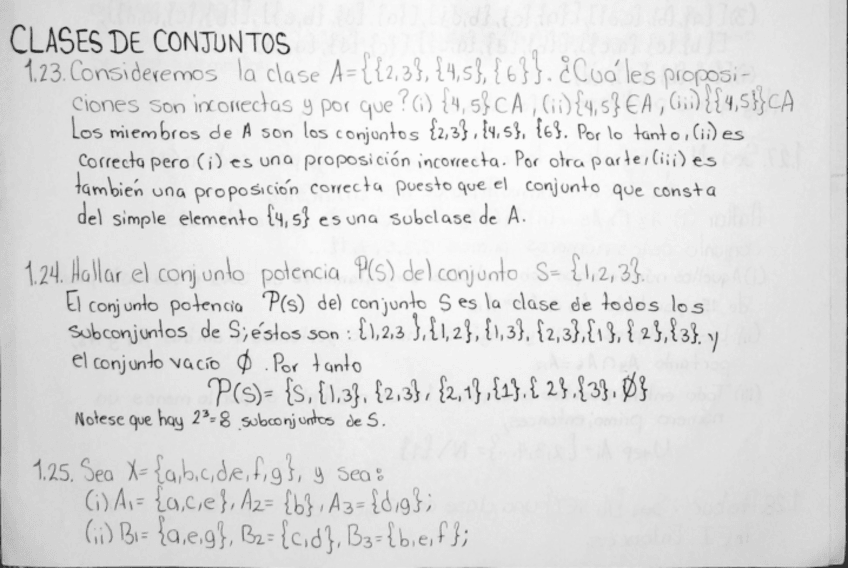 CLASES DE CONJUNTOS
1.23. Consideremos la clase A={{2,3}, {4,5}, {6}}. ¿Cuáles proposi-
ciones son incorrectas y por que? (i) {4,5}⊂A, (ii){4,5}∈A, (iii){{4,5}}⊂A
Los miembros de A son los conjuntos {2,3}, {4,5}, {6}. Por lo tanto, (ii) es
correcta pero (i) es una proposición incorrecta. Por otra parte, (iii) es
también una proposición correcta puesto que el conjunto que consta
del simple elemento {4,5} es una subclase de A.
1.24. Hallar el conjunto potencia P(S) del conjunto S= {1,2,3}.
El conjunto potencia P(S) del conjunto S es la clase de todos los
subconjuntos de S; éstos son: {1,2,3}, {1,2}, {1,3}, {2,3}, {1}, {2}, {3}. y
el conjunto vacío Ø. Por tanto
P(S)= {S, {1,3}, {2,3}, {2,1}, {1}, {2}, {3}, Ø}
Notese que hay 2³=8 subconjuntos de S.
1.25. Sea X= {a,b,c,d,e,f,g}, y sea:
(i) A₁= {a,c,e}, A₂= {b}, A₃= {d,g};
(ii) B₁= {a,e,g}, B₂= {c,d}, B₃= {b,e,f};